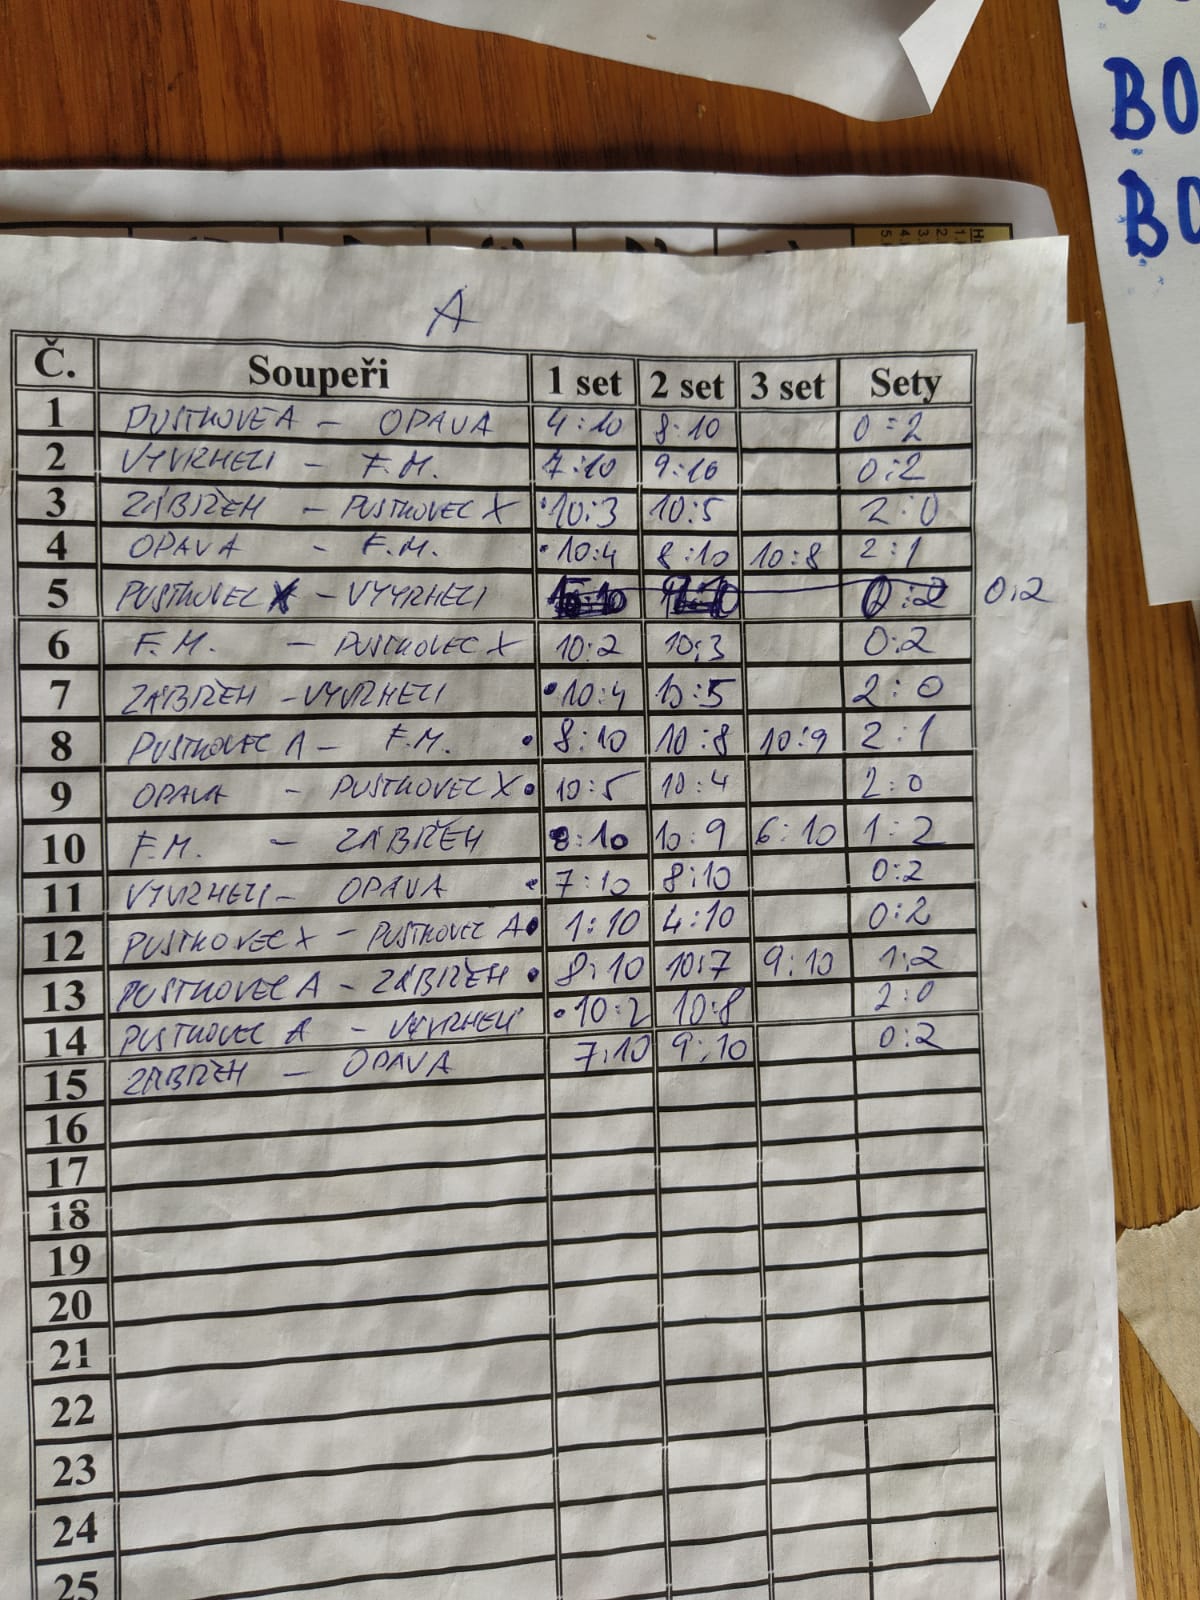 BO
BO
A
Č. Soupeři 1 set 2 set 3 set Sety
1 PUSTKOVEC A - OPAVA 4:10 8:10 0:2
2 VYVRHELI - F.M. 7:10 9:10 0:2
3 ZÁBŘEH - PUSTKOVEC X 10:3 10:5 2:0
4 OPAVA - F.M. 10:4 8:10 10:8 2:1
5 PUSTKOVEC X - VYVRHELI 0:2 0:2
6 F.M. - PUSTKOVEC X 10:2 10:3 0:2
7 ZÁBŘEH - VYVRHELI 10:4 10:5 2:0
8 PUSTKOVEC A - F.M. 8:10 10:8 10:9 2:1
9 OPAVA - PUSTKOVEC X 10:5 10:4 2:0
10 F.M. - ZÁBŘEH 8:10 10:9 6:10 1:2
11 VYVRHELI - OPAVA 7:10 8:10 0:2
12 PUSTKOVEC X - PUSTKOVEC A 1:10 4:10 0:2
13 PUSTKOVEC A - ZÁBŘEH 8:10 10:7 9:10 1:2
14 PUSTKOVEC A - VYVRHELI 10:2 10:8 2:0
15 ZÁBŘEH - OPAVA 7:10 9:10 0:2
16
17
18
19
20
21
22
23
24
25